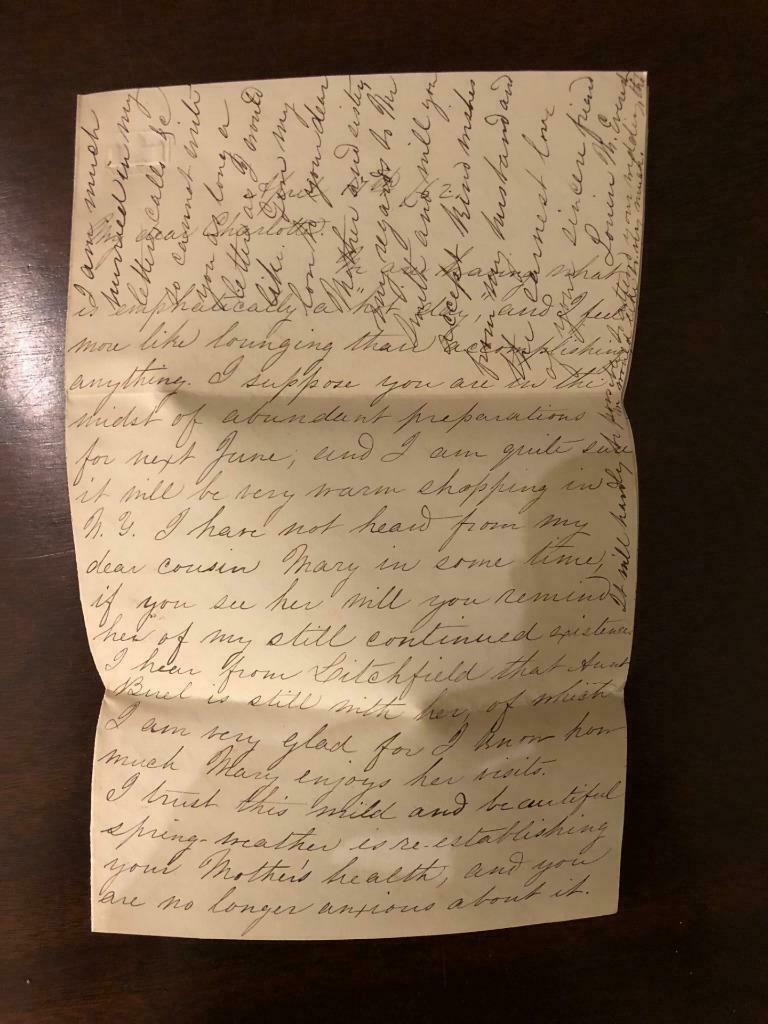 My dear Charlotte.
We are having what
is emphatically a hot day, and I feel
more like lounging than accomplishing
anything. I suppose you are in the
midst of abundant preparations
for next June, and I am quite sure
it will be very warm shopping in
N. Y. I have not heard from my
dear cousin Mary in some time,
if you see her will you remind
her of my still continued existence.
I hear from Litchfield that Aunt
Buel is still with her, of which
I am very glad for I know how
much Mary enjoys her visits.
I trust this mild and beautiful
spring-weather is re-establishing
your Mother's health, and you
are no longer anxious about it.
I am much
hurried in my
letters calls &c
so cannot write
you as long a
letter as I would
like. Give my
love to your dear
Mother and sister
my regards to Mr
Smith and will you
accept kind wishes
from my husband and
the earnest love
of your sincere friend
It will hardly be possible to attend your wedding, tho'
should like to very much.